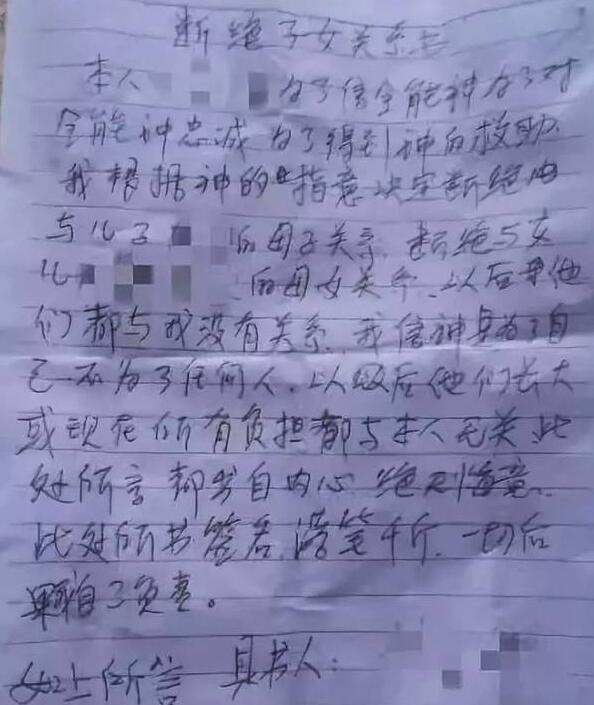 断绝子女关系
本人 为了信全能神为了对
全能神忠诚为了得到神的救助
我根据神的指意决定断绝
与儿子 的母子关系 断绝与女
儿 的母女关系、以后他
们都与我没有关系、我信神是为了自
己不为了任何人、以后他们长大
或现在所有负担都与本人无关 此
处所言都出自内心 绝无悔意、
此处所书签名 落笔千斤、一切后
果自己负责。
如上所言 具书人：